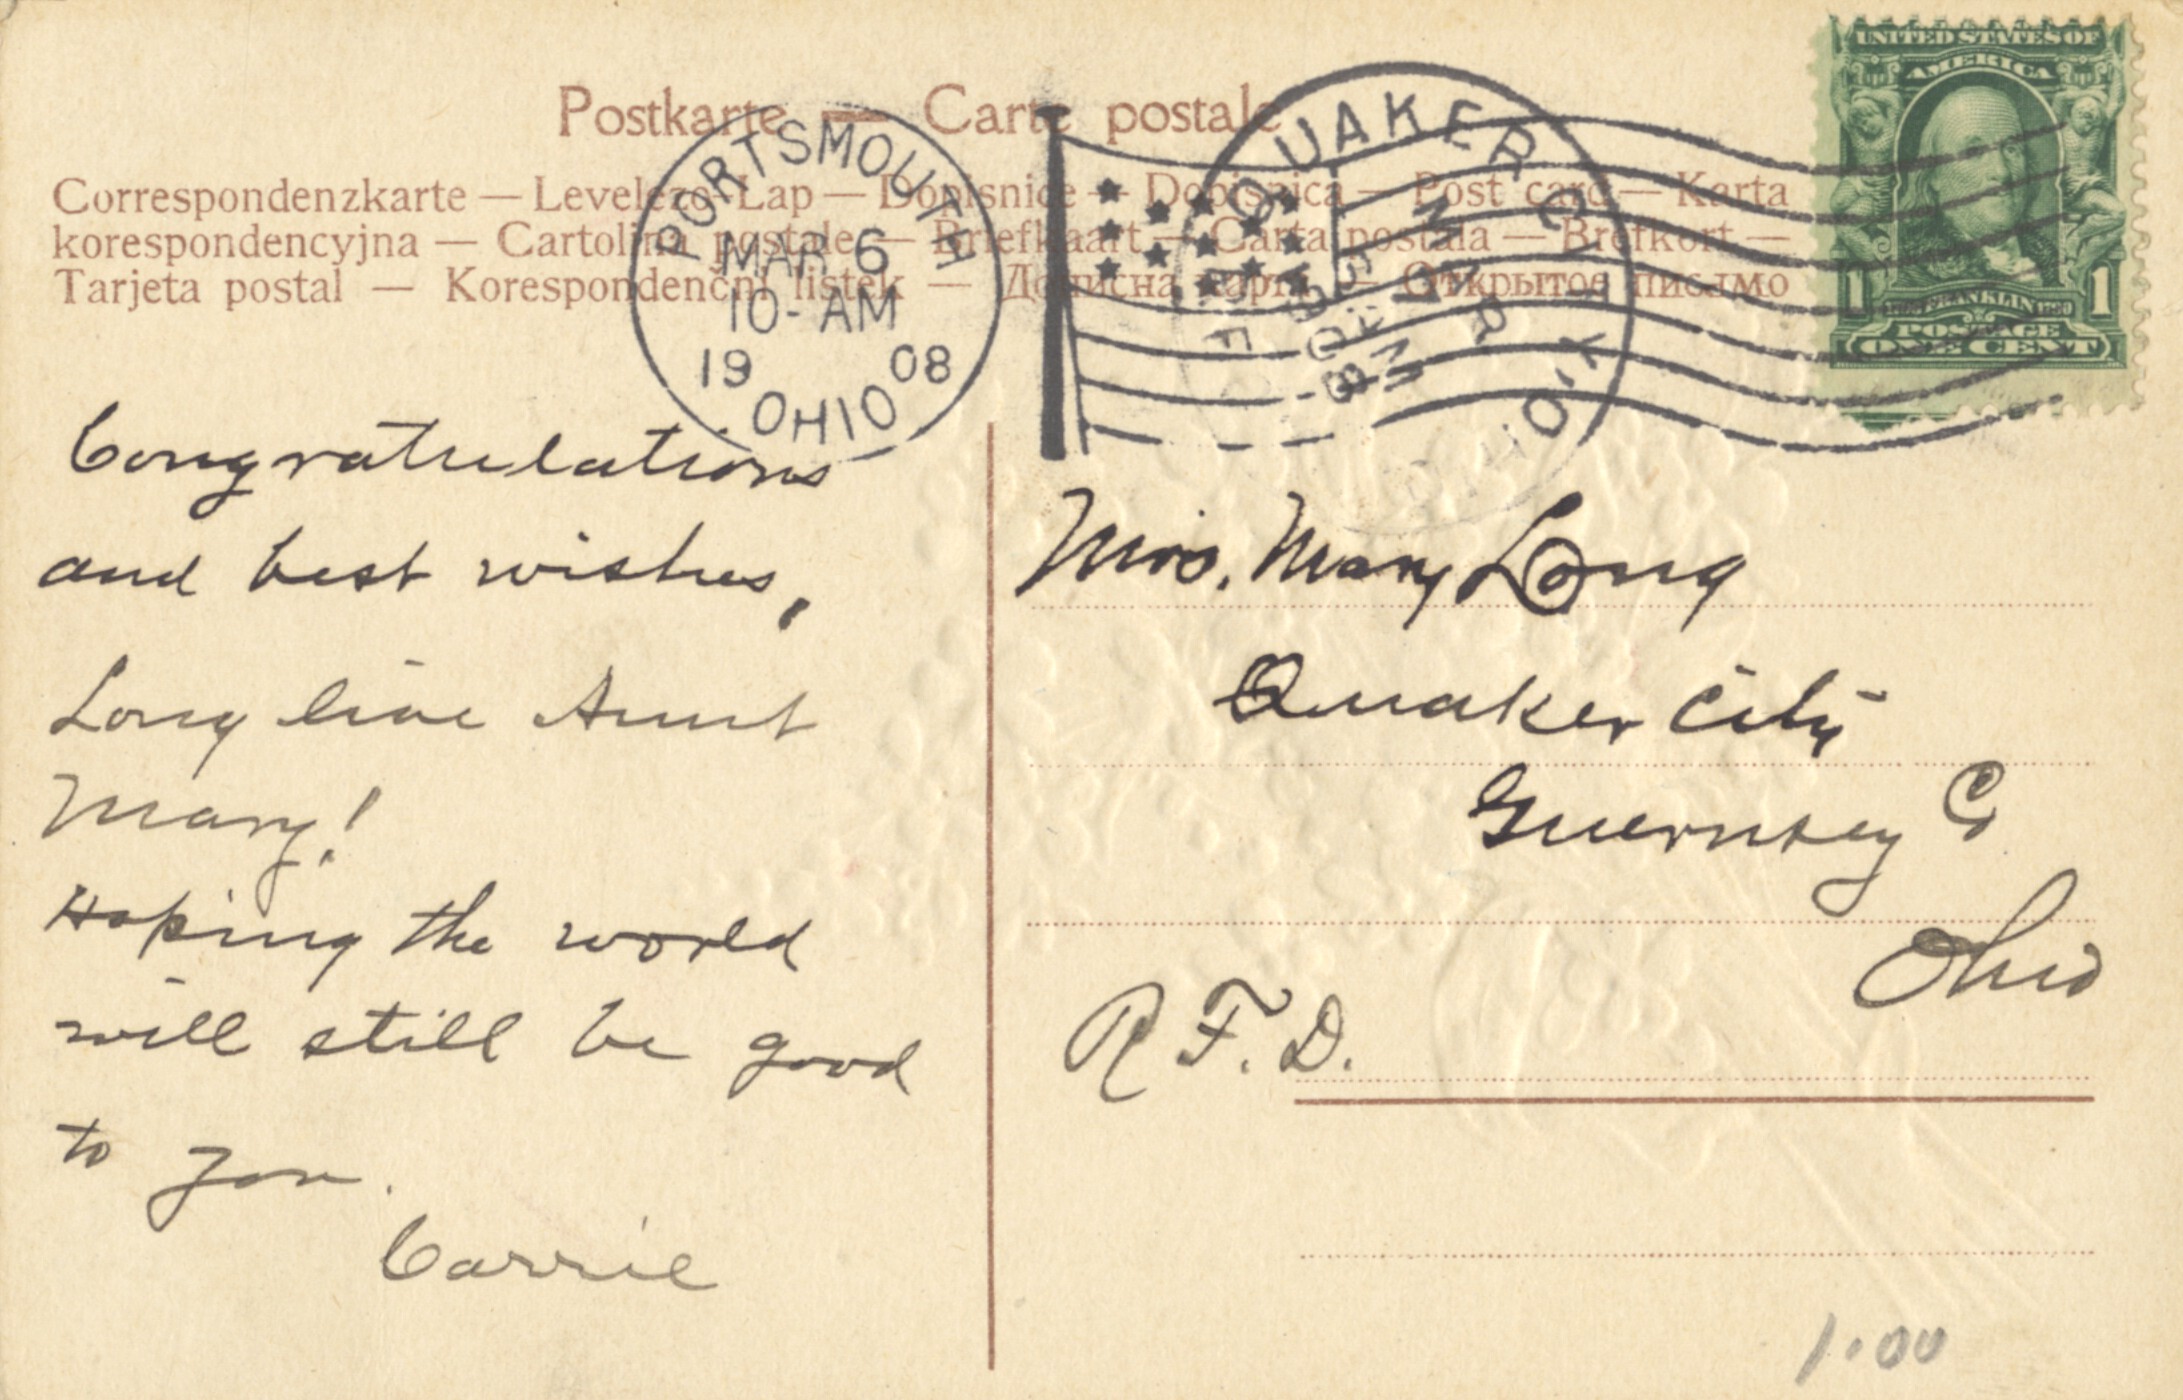 Postkarte — Carte postale
Correspondenzkarte — Levelezo-Lap — Dopisnice — Dopisnica — Post card — Karta
korespondencyjna — Cartolina postale — Briefkaart — Carta postala — Brefkort —
Tarjeta postal — Korespondenční listek — Дописна карта — Открытое письмо
PORTSMOUTH
MAR 6
10-AM
19 08
OHIO
QUAKER CITY, O.
MAR
1908
UNITED STATES OF
AMERICA
1 1
POSTAGE
ONE CENT
Congratulations
and best wishes,
Long live Aunt
Mary!
Hoping the world
will still be good
to you.
Carrie
Mrs. Mary Long
Quaker City
Guernsey Co
Ohio
R F. D.
1.00